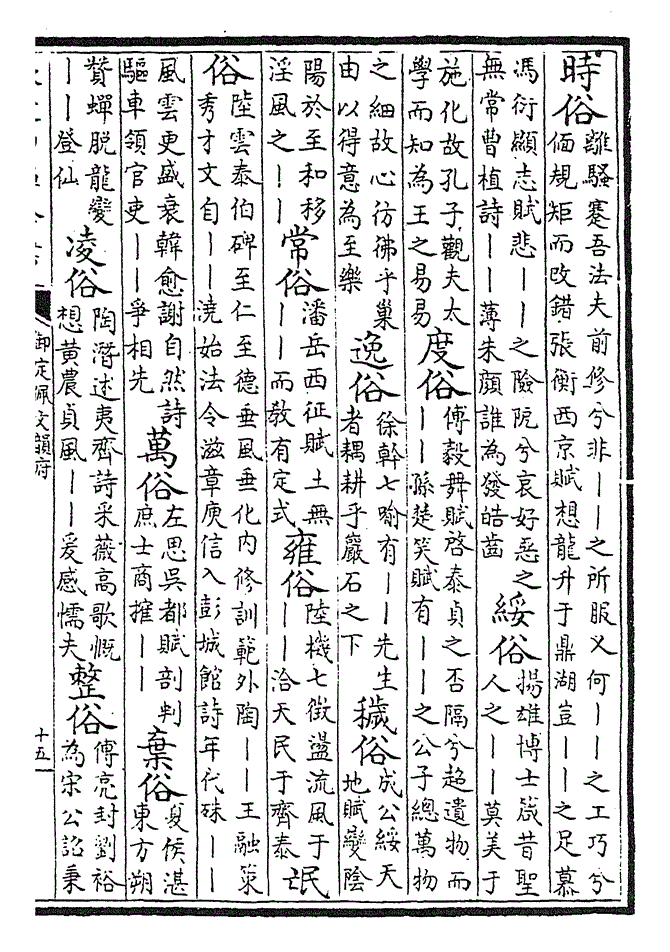 時俗
離騷謇吾法夫前修兮非——之所服又何——之工巧兮
偭規矩而改錯張衡西京賦想龍升于鼎湖豈——之足慕
馮衍顯志賦悲——之險阨兮哀好惡之
無常曹植詩——薄朱顏誰為發皓齒
綏俗
揚雄博士箴昔聖
人之——莫美于
施化故孔子觀夫太
學而知為王之易易
度俗
傅毅舞賦啓泰貞之否隔兮超遺物而
——孫楚笑賦有——之公子總萬物
之細故心彷彿乎巢
由以得意為至樂
逸俗
徐幹七喻有——先生
者耦耕乎巖石之下
穢俗
成公綏天
地賦變陰
陽於至和移
淫風之——
常俗
潘岳西征賦土無
——而敎有定式
雍俗
陸機七徵盪流風于
——洽天民于齊泰
氓
俗
陸雲泰伯碑至仁至德垂風垂化內修訓範外陶——王融策
秀才文自——澆始法令滋章庾信入彭城館詩年代殊——
風雲更盛衰韓愈謝自然詩
驅車領官吏——爭相先
萬俗
左思吳都賦剖判
庶士商搉——
棄俗
夏侯湛
東方朔
贊蟬脫龍變
——登仙
凌俗
陶潛述夷齊詩采薇高歌慨
想黃農貞風——爰感懦夫
整俗
傅亮封劉裕
為宋公詔秉
御定佩文韻府
十五